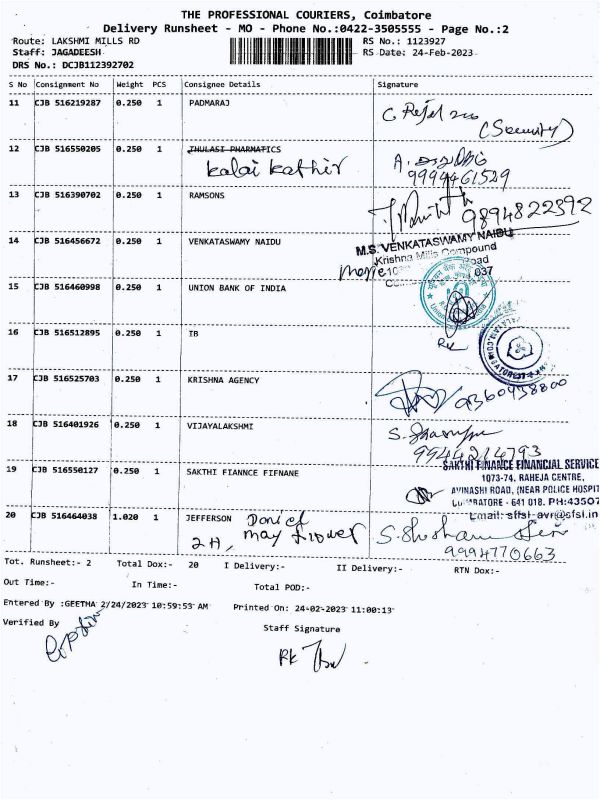 THE PROFESSIONAL COURIERS, Coimbatore
Delivery Runsheet - MO - Phone No.:0422-3505555 - Page No.:2
Route: LAKSHMI MILLS RD RS No.: 1123927
Staff: JAGADEESH RS Date: 24-Feb-2023
DRS No.: DCJB112392702
S No Consignment No Weight PCS Consignee Details Signature
11 CJB 516219287 0.250 1 PADMARAJ
(Security)
12 CJB 516550205 0.250 1 THULASI PHARMATICS
kalai kathir
9994461529
13 CJB 516390702 0.250 1 RAMSONS
9894822392
14 CJB 516456672 0.250 1 VENKATASWAMY NAIDU
M.S. VENKATASWAMY NAIDU
Krishna Mills Compound
Road
037
15 CJB 516460998 0.250 1 UNION BANK OF INDIA
16 CJB 516512895 0.250 1 IB
17 CJB 516525703 0.250 1 KRISHNA AGENCY
9360938800
18 CJB 516401926 0.250 1 VIJAYALAKSHMI
9944214793
19 CJB 516550127 0.250 1 SAKTHI FIANNCE FIFNANE
SAKTHI FINANCE FINANCIAL SERVICE
1073-74, RAHEJA CENTRE,
AVINASHI ROAD, (NEAR POLICE HOSPIT
641 018. PH:43507
Email: sffsl-avr@sfsl.in
20 CJB 516464038 1.020 1 JEFFERSON Daniel
2A, may flower
9994770663
Tot. Runsheet:- 2 Total Dox:- 20 I Delivery:- II Delivery:- RTN Dox:-
Out Time:- In Time:- Total POD:-
Entered By :GEETHA 2/24/2023 10:59:53 AM Printed On: 24-02-2023 11:00:13
Verified By
Staff Signature
RK